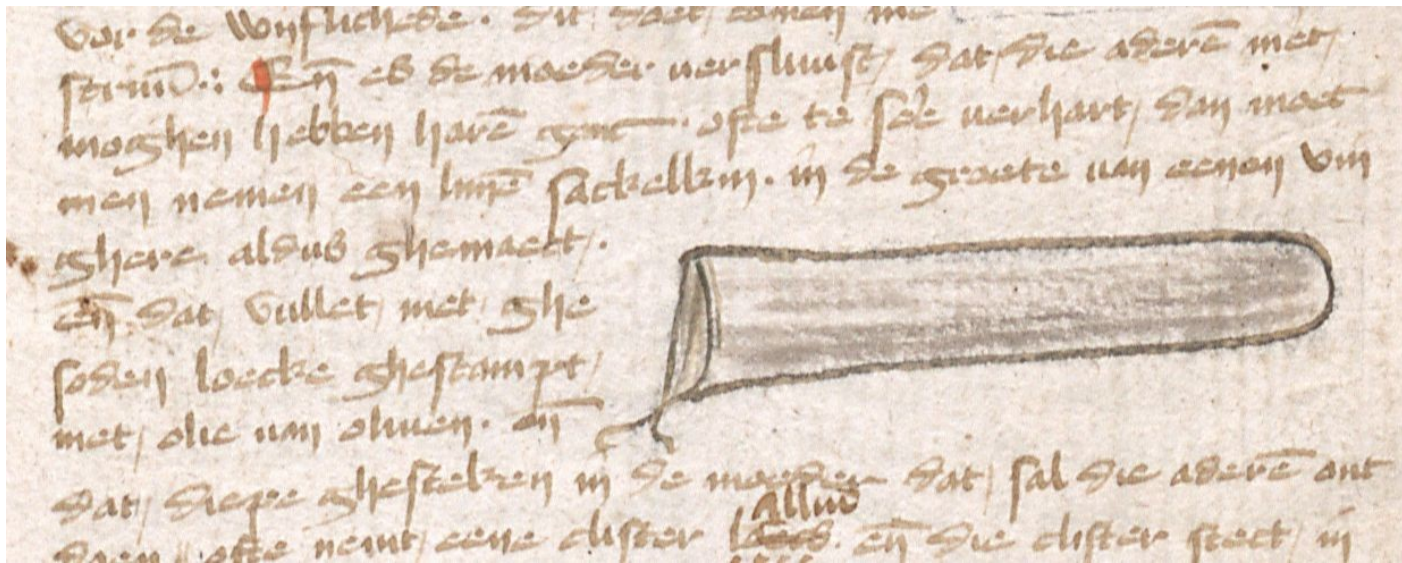 vor de wijflichede. dit doet comen me
struū.: Eñ es de moeder versluust, dat die aderē niet,
moghen hebben harē ganc. ofte te seere verhart, dan moet
men nemen een linē sackelkin. in de groete van eenen vin
ghere aldus ghemaect.
eñ dat, vullet, met, ghe
soden loecke ghestampt,
met, olie van oliven. eñ
dat, diepe ghesteken in de moeder dat, sal die aderē ont
alluus
doen ofte neint, eene clister eñ die clister stect, in